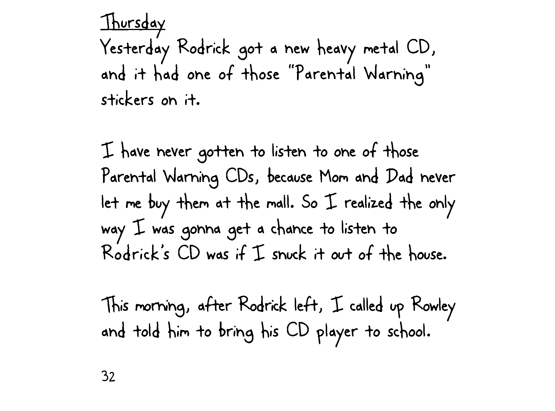 Thursday
Yesterday Rodrick got a new heavy metal CD,
and it had one of those "Parental Warning"
stickers on it.
I have never gotten to listen to one of those
Parental Warning CDs, because Mom and Dad never
let me buy them at the mall. So I realized the only
way I was gonna get a chance to listen to
Rodrick's CD was if I snuck it out of the house.
This morning, after Rodrick left, I called up Rowley
and told him to bring his CD player to school.
32